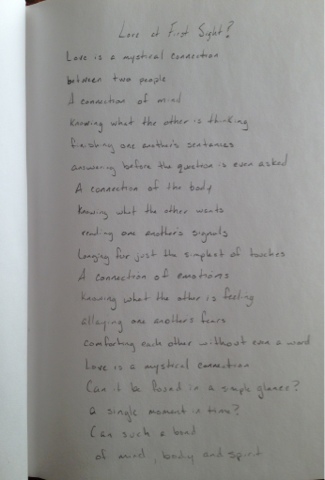 Love at First Sight?
Love is a mystical connection
between two people
A connection of mind
knowing what the other is thinking
finishing one another's sentences
answering before the question is even asked
A connection of the body
knowing what the other wants
reading one another's signals
longing for just the simplest of touches
A connection of emotions
knowing what the other is feeling
allaying one another's fears
comforting each other without even a word
Love is a mystical connection
Can it be found in a single glance?
a single moment in time?
Can such a bond
of mind, body and spirit